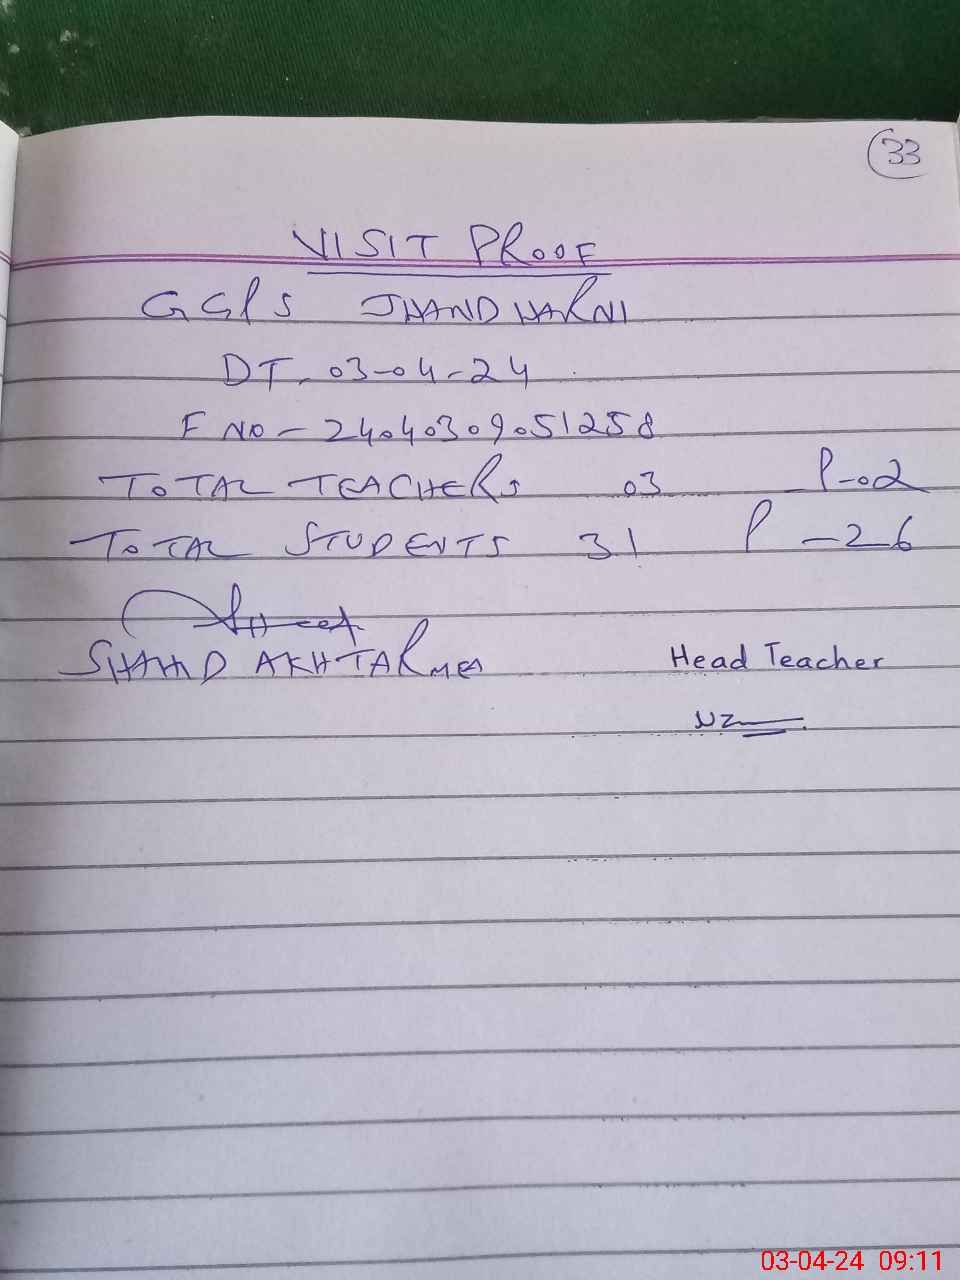 33
VISIT PROOF
GGPS JHANDHARNI
DT. 03-04-24
F NO - 24040309051258
TOTAL TEACHERS 03 P-02
TOTAL STUDENTS 31 P -26
SHAHID AKHTAR MEA
Head Teacher
NZ
03-04-24 09:11